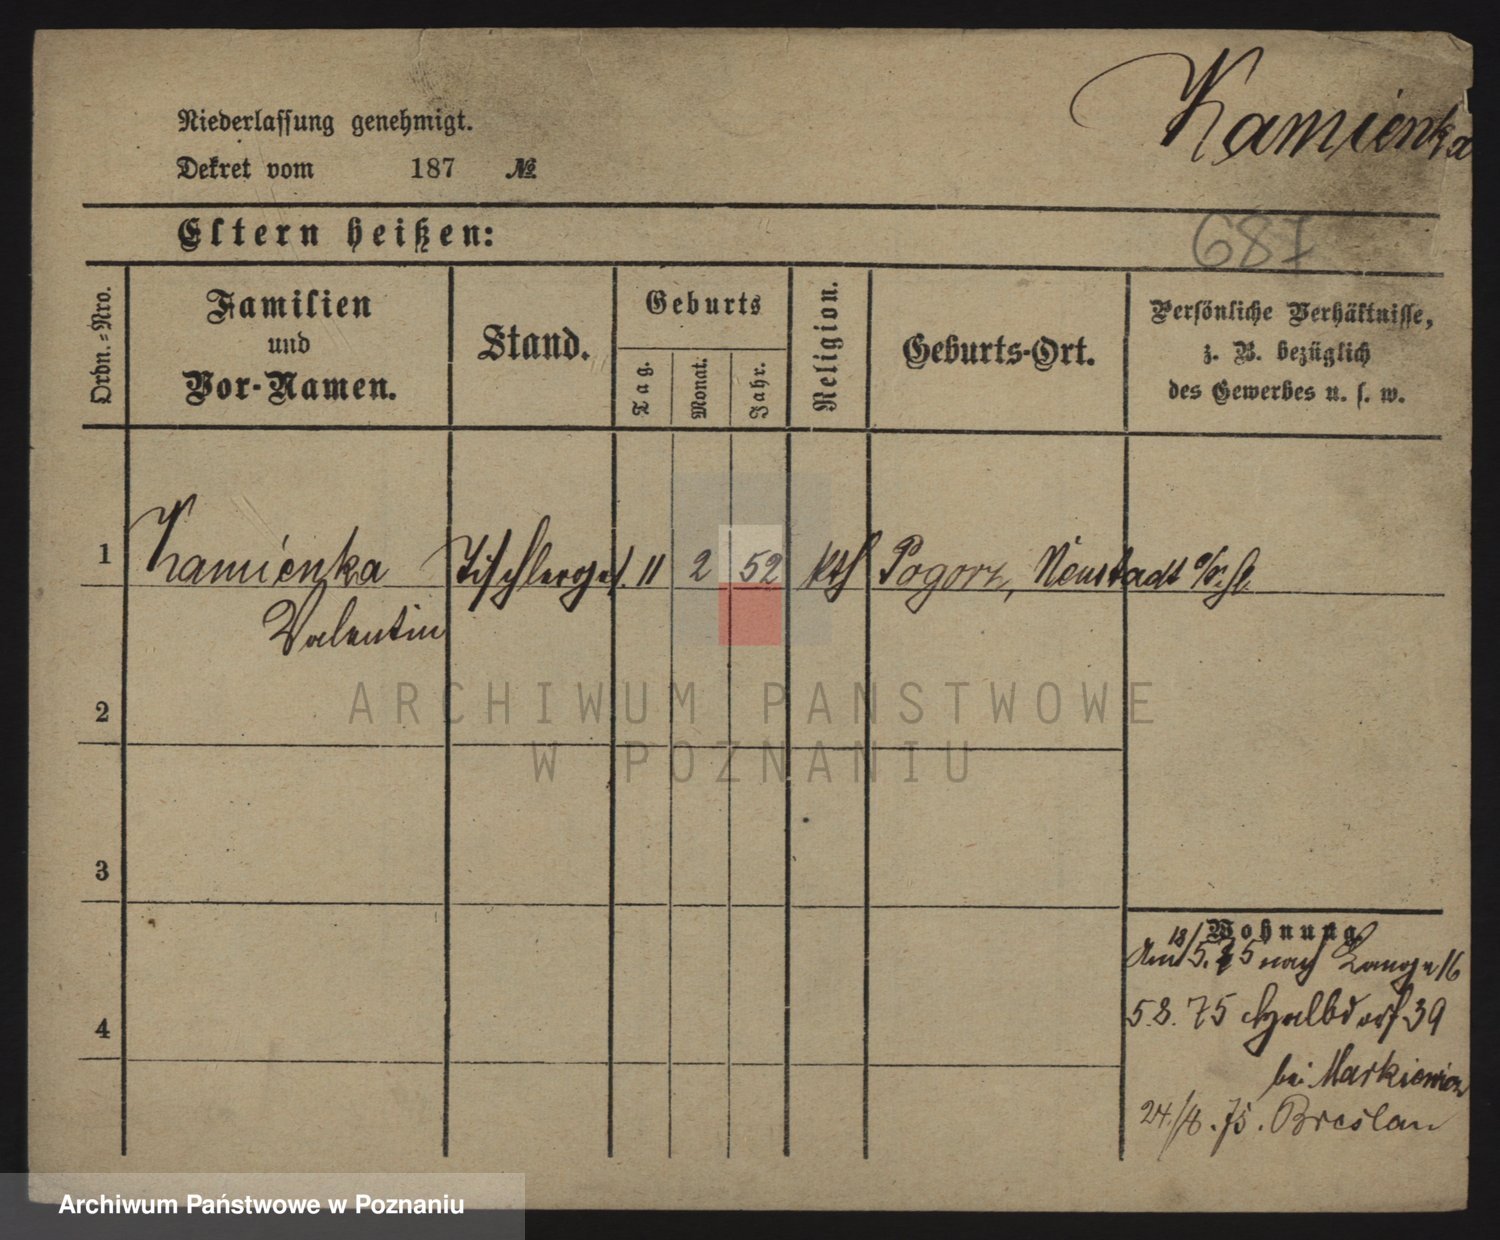 Kamienka
Niederlassung genehmigt.
Dekret vom 187 №
Eltern heißen:
687
Ordn.-Nro.
Familien
und
Vor-Namen.
Stand.
Geburts
Tag.
Monat.
Jahr.
Religion.
Geburts-Ort.
Persönliche Verhältnisse,
z. B. bezüglich
des Gewerbes u. s. w.
1 Kamienka Tischlerges. 11 2 52 kth Pogorz, Neustadt
Valentin
2
3
4
Wohnung
Am 18/5. 75 nach Lange 16
5.8.75 Halbdorf 39
bei Markiewicz
24./8.75. Breslau
ARCHIWUM PAŃSTWOWE
W POZNANIU
Archiwum Państwowe w Poznaniu